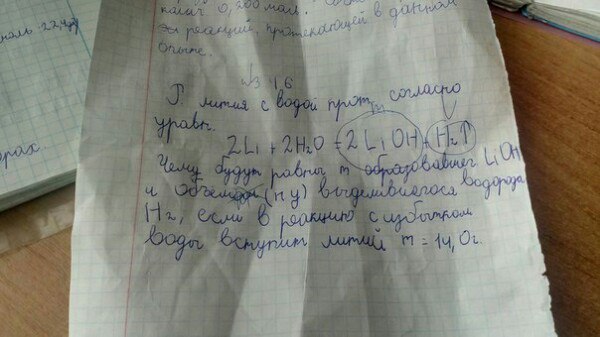 колич 0,200 моль.
эт реакций, протекающей в данном
опыте.
моль 22,4
орах.
№3.46
Р лития с водой прот. согласно
уравн. m
2Li + 2H₂O = 2LiOH + H₂↑
Чему будут равны m образовавшег LiOH
и объемом (н у) выделившегося водорода
H₂, если в реакцию с избытком
воды вступит литий m = 14,0г.